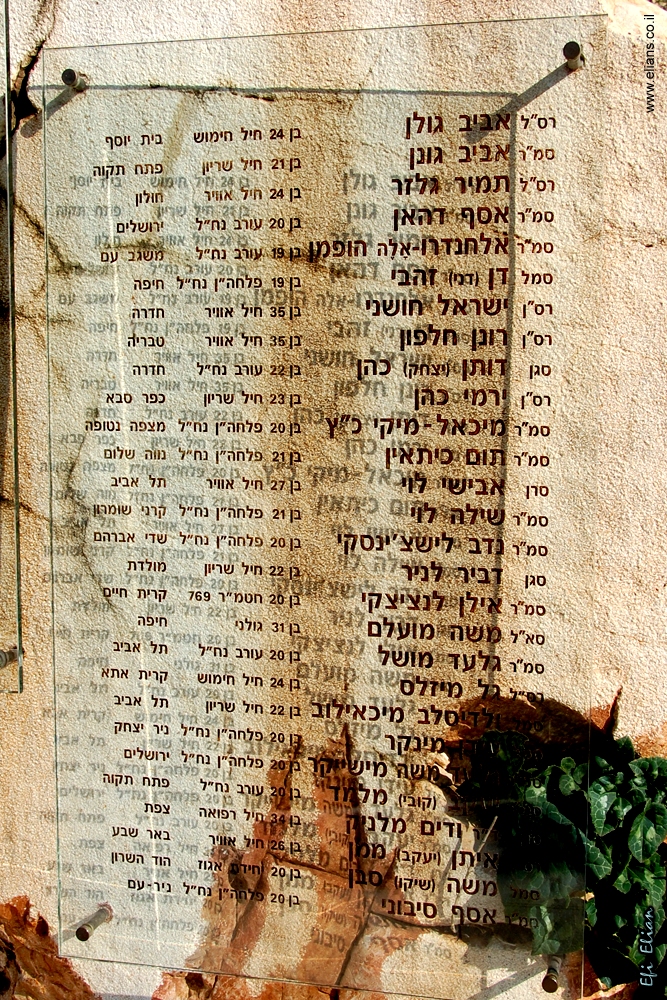 רס"ל אביב גולן בן 24 חיל חימוש בית יוסף
סמ"ר אביב גונן בן 21 חיל שריון פתח תקוה
רס"ל תמיר גלזר בן 24 חיל אוויר חולון
סמ"ר אסף דהאן בן 20 עורב נח"ל ירושלים
סמ"ר אלחנדרו-אלה הופמן בן 19 עורב נח"ל משגב עם
סמל דן (דני) זהבי בן 19 פלחה"ן נח"ל חיפה
רס"ן ישראל חושני בן 35 חיל אוויר חדרה
רס"ן רונן חלפון בן 35 חיל אוויר טבריה
סגן דותן (יצחק) כהן בן 22 עורב נח"ל חדרה
רס"ן ירמי כהן בן 23 חיל שריון כפר סבא
סמ"ר מיכאל-מיקי כ"ץ בן 20 פלחה"ן נח"ל מצפה נטופה
סמ"ר תום כיתאין בן 21 פלחה"ן נח"ל נווה שלום
סרן אבישי לוי בן 27 חיל אוויר תל אביב
סמ"ר שילה לוי בן 21 פלחה"ן נח"ל קרני שומרון
סמ"ר נדב לישצ'ינסקי בן 20 פלחה"ן נח"ל שדי אברהם
סגן דביר לניר בן 22 חיל שריון מולדת
סמ"ר אילן לנציצקי בן 20 חטמ"ר 769 קרית חיים
סא"ל משה מועלם בן 31 גולני חיפה
סמ"ר גלעד מושל בן 20 עורב נח"ל תל אביב
רס"ל גל מיזלס בן 24 חיל חימוש קרית אתא
ולדיסלב מיכאילוב בן 22 חיל שריון תל אביב
מינקר בן 20 פלחה"ן נח"ל ניר יצחק
משה מישייקר בן 20 פלחה"ן נח"ל ירושלים
(קובי) מלמד בן 20 עורב נח"ל פתח תקוה
ודים מלניק בן 34 חיל רפואה צפת
איתן (יעקב) ממן בן 26 חיל אוויר באר שבע
סמל משה (שיקו) סבן בן 20 יחידת אגוז הוד השרון
סמ"ר אסף סיבוני בן 20 פלחה"ן נח"ל ניר-עם
www.elians.co.il
Efi Elian